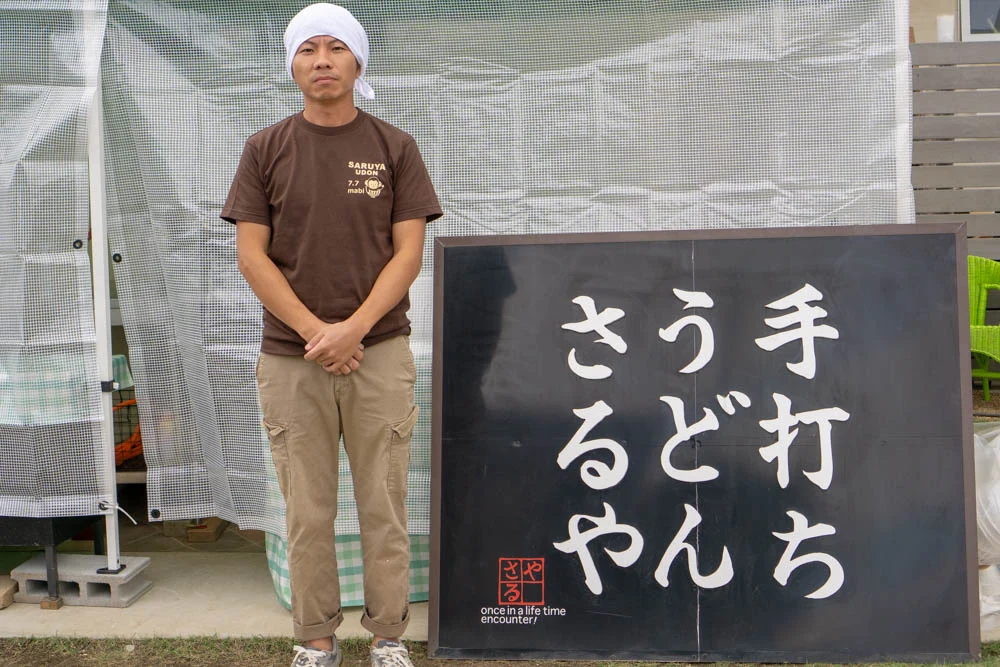 SARUYA
UDON
7.7
mabi
手打ち
うどん
さるや
さるや
once in a life time
encounter!